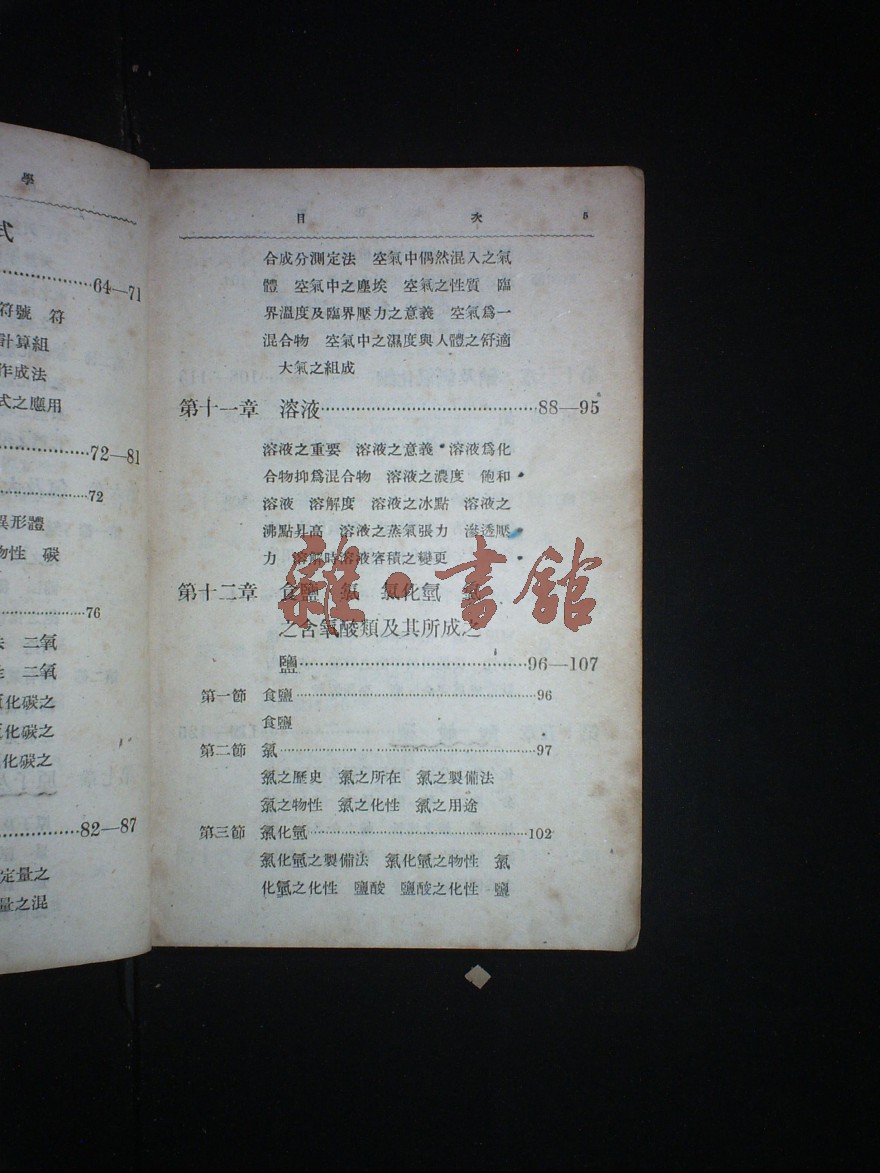 學
式
64—71
符號 符
計算組
作成法
式之應用
72—81
72
異形體
物性 碳
76
法 二氧
性 二氧
氧化碳之
氧化碳之
化碳之
82—87
定量之
量之混
目 次 5
合成分測定法 空氣中偶然混入之氣
體 空氣中之塵埃 空氣之性質 臨
界溫度及臨界壓力之意義 空氣爲一
混合物 空氣中之濕度與人體之舒適
大氣之組成
第十一章 溶液 88—95
溶液之重要 溶液之意義 溶液爲化
合物抑爲混合物 溶液之濃度 飽和
溶液 溶解度 溶液之冰點 溶液之
沸點昇高 溶液之蒸氣張力 滲透壓
力 溶解時溶液容積之變更
第十二章 食鹽 氯 氯化氫 氯
之含氧酸類及其所成之
鹽 96—107
第一節 食鹽 96
食鹽
第二節 氯 97
氯之歷史 氯之所在 氯之製備法
氯之物性 氯之化性 氯之用途
第三節 氯化氫 102
氯化氫之製備法 氯化氫之物性 氯
化氫之化性 鹽酸 鹽酸之化性 鹽
雜·書館